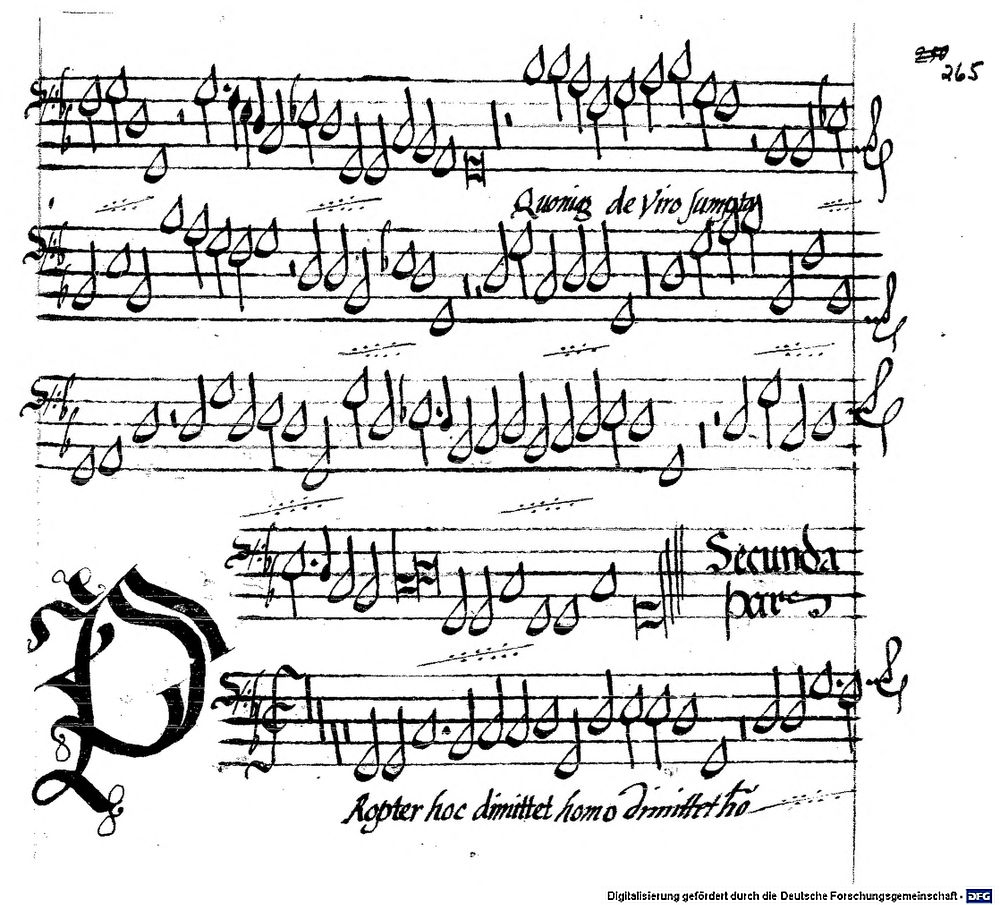 265
Quoniã de viro sumpta
Secunda
pars
P
Ropter hoc dimittet homo dimittet hõ
Digitalisierung gefördert durch die Deutsche Forschungsgemeinschaft - DFG